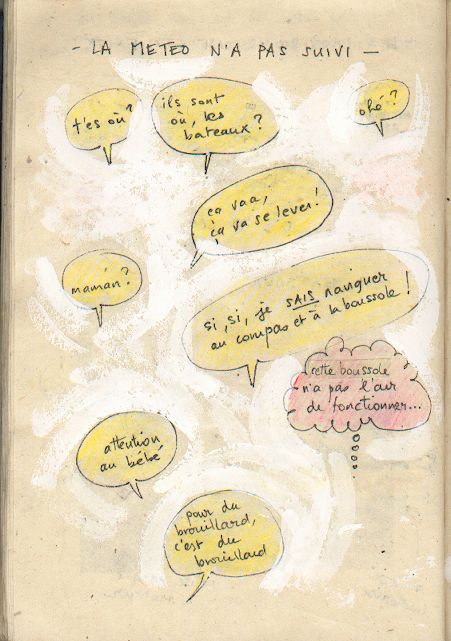 - LA METEO N'A PAS SUIVI -
t'es où?
ils sont
où, les
bateaux?
ohé?
ça vaa,
ça va se lever!
maman?
si, si, je SAIS naviguer
au compas et à la boussole!
cette boussole
n'a pas l'air
de fonctionner...
attention
au bébé
pour du
brouillard,
c'est du
brouillard